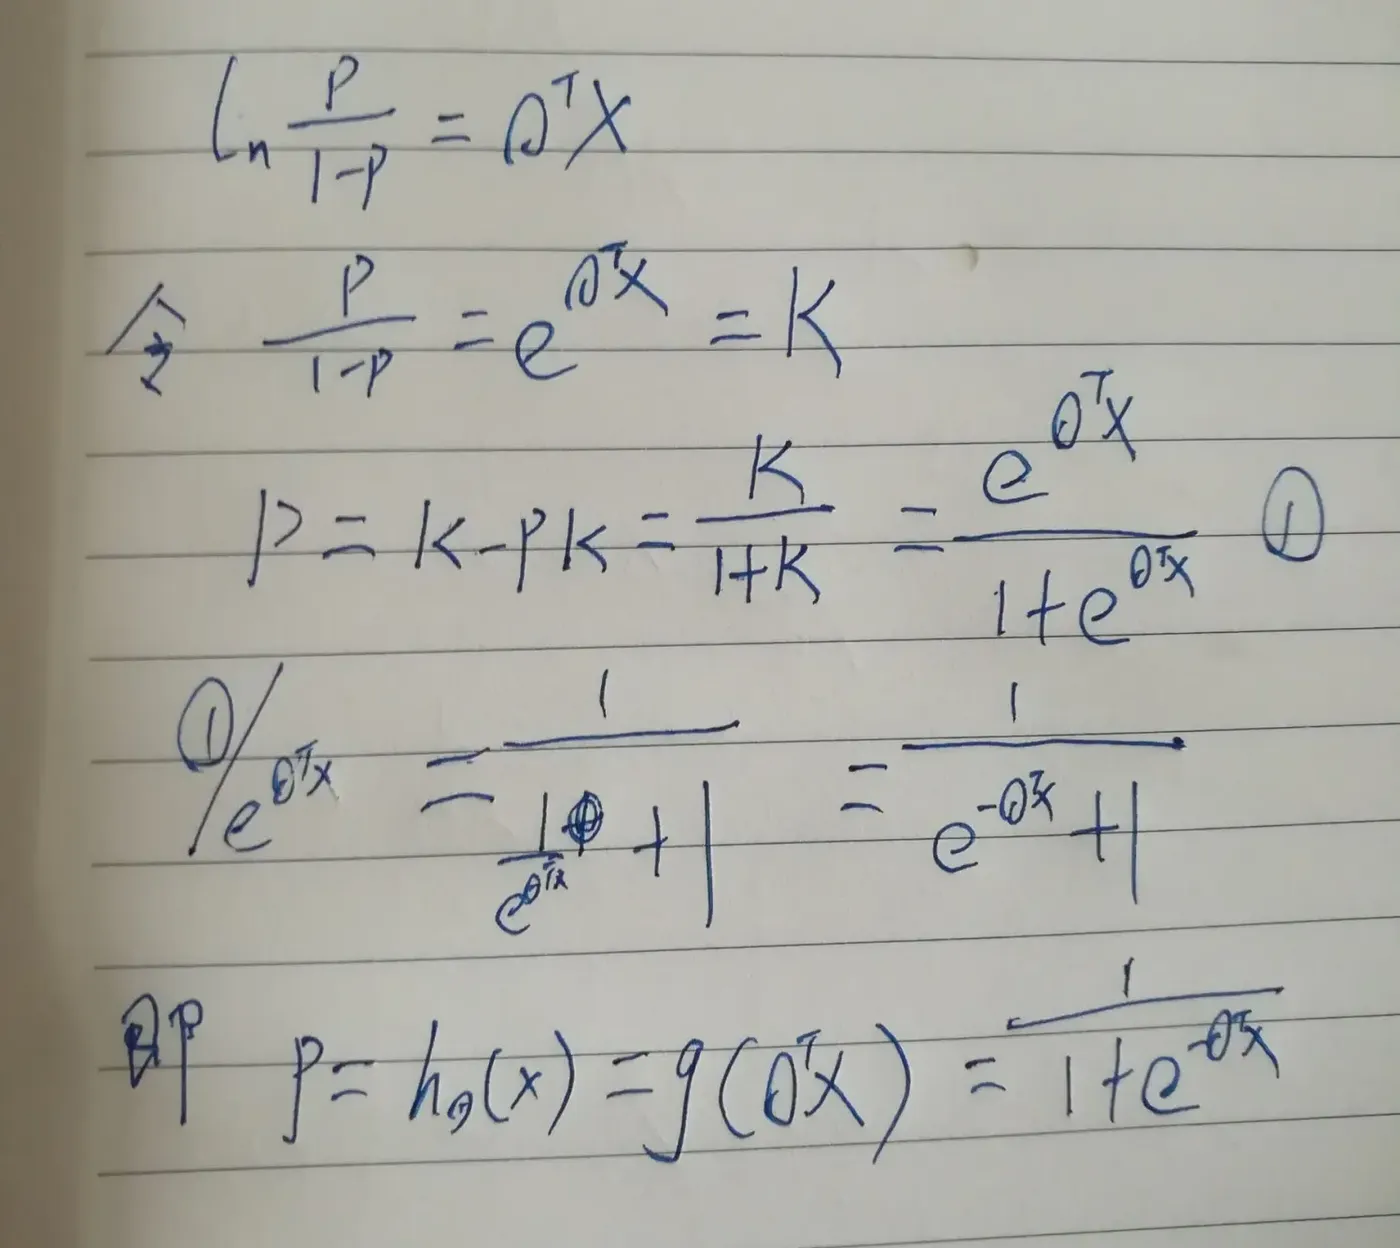 ln P/(1-P) = θ^T X
令 P/(1-P) = e^(θ^T X) = K
P = K - PK = K/(1+K) = e^(θ^T X)/(1+e^(θ^T X)) ①
①/e^(θ^T X) = 1/(1/e^(θ^T x) + 1) = 1/(e^(-θ^T X) + 1)
即 P = h_θ(x) = g(θ^T X) = 1/(1+e^(-θ^T X))